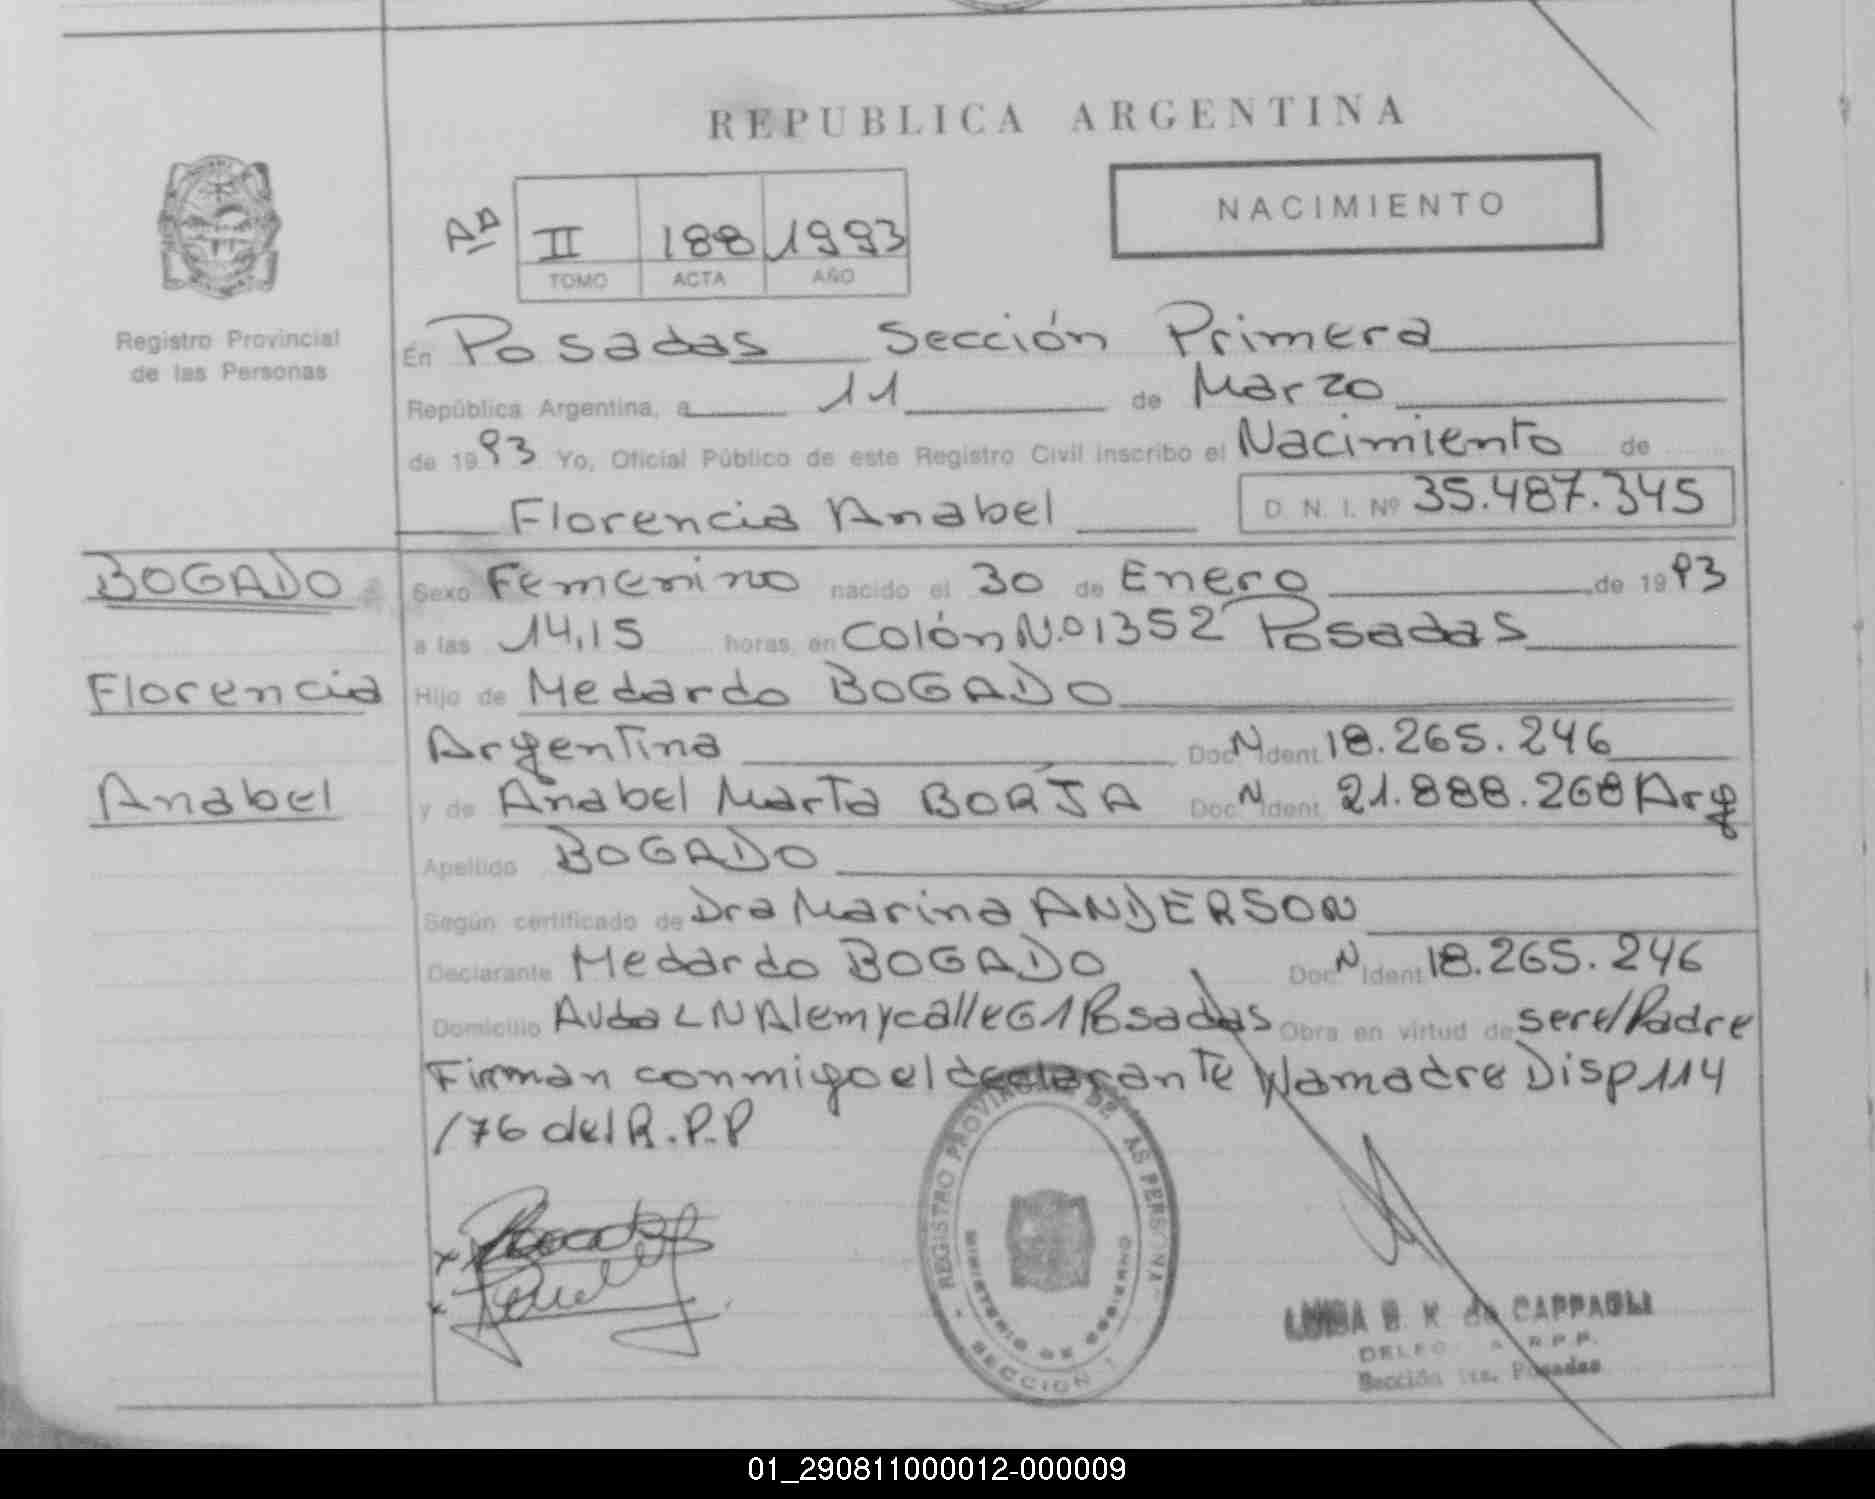 REPUBLICA ARGENTINA
NACIMIENTO
Aº II 188 1993
TOMO ACTA AÑO
Registro Provincial
de las Personas
En Posadas Sección Primera
República Argentina, a 11 de Marzo
de 1993 Yo, Oficial Público de este Registro Civil inscribo el Nacimiento de
Florencia Anabel D. N. I. Nº 35.487.345
BOGADO
Florencia
Anabel
Sexo Femenino nacido el 30 de Enero de 1993
a las 14,15 horas, en Colón N.º 1352 Posadas
Hijo de Medardo BOGADO
Argentina Doc N Ident. 18.265.246
y de Anabel Marta BORJA Doc N Ident. 21.888.268 Arg
Apellido BOGADO
Según certificado de Dra Marina ANDERSON
Declarante Medardo BOGADO Doc N Ident. 18.265.246
Domicilio Avda L N Alem y calle 61 Posadas Obra en virtud de ser el Padre
Firman conmigo el declarante y la madre Disp 114
/76 del R.P.P
REGISTRO PROVINCIAL DE LAS PERSONAS
MINISTERIO DE GOBIERNO
SECCION 1
LUISA B. K. de CAPPAGLI
R.P.P.
Sección 1ra. Posadas
01_290811000012-000009